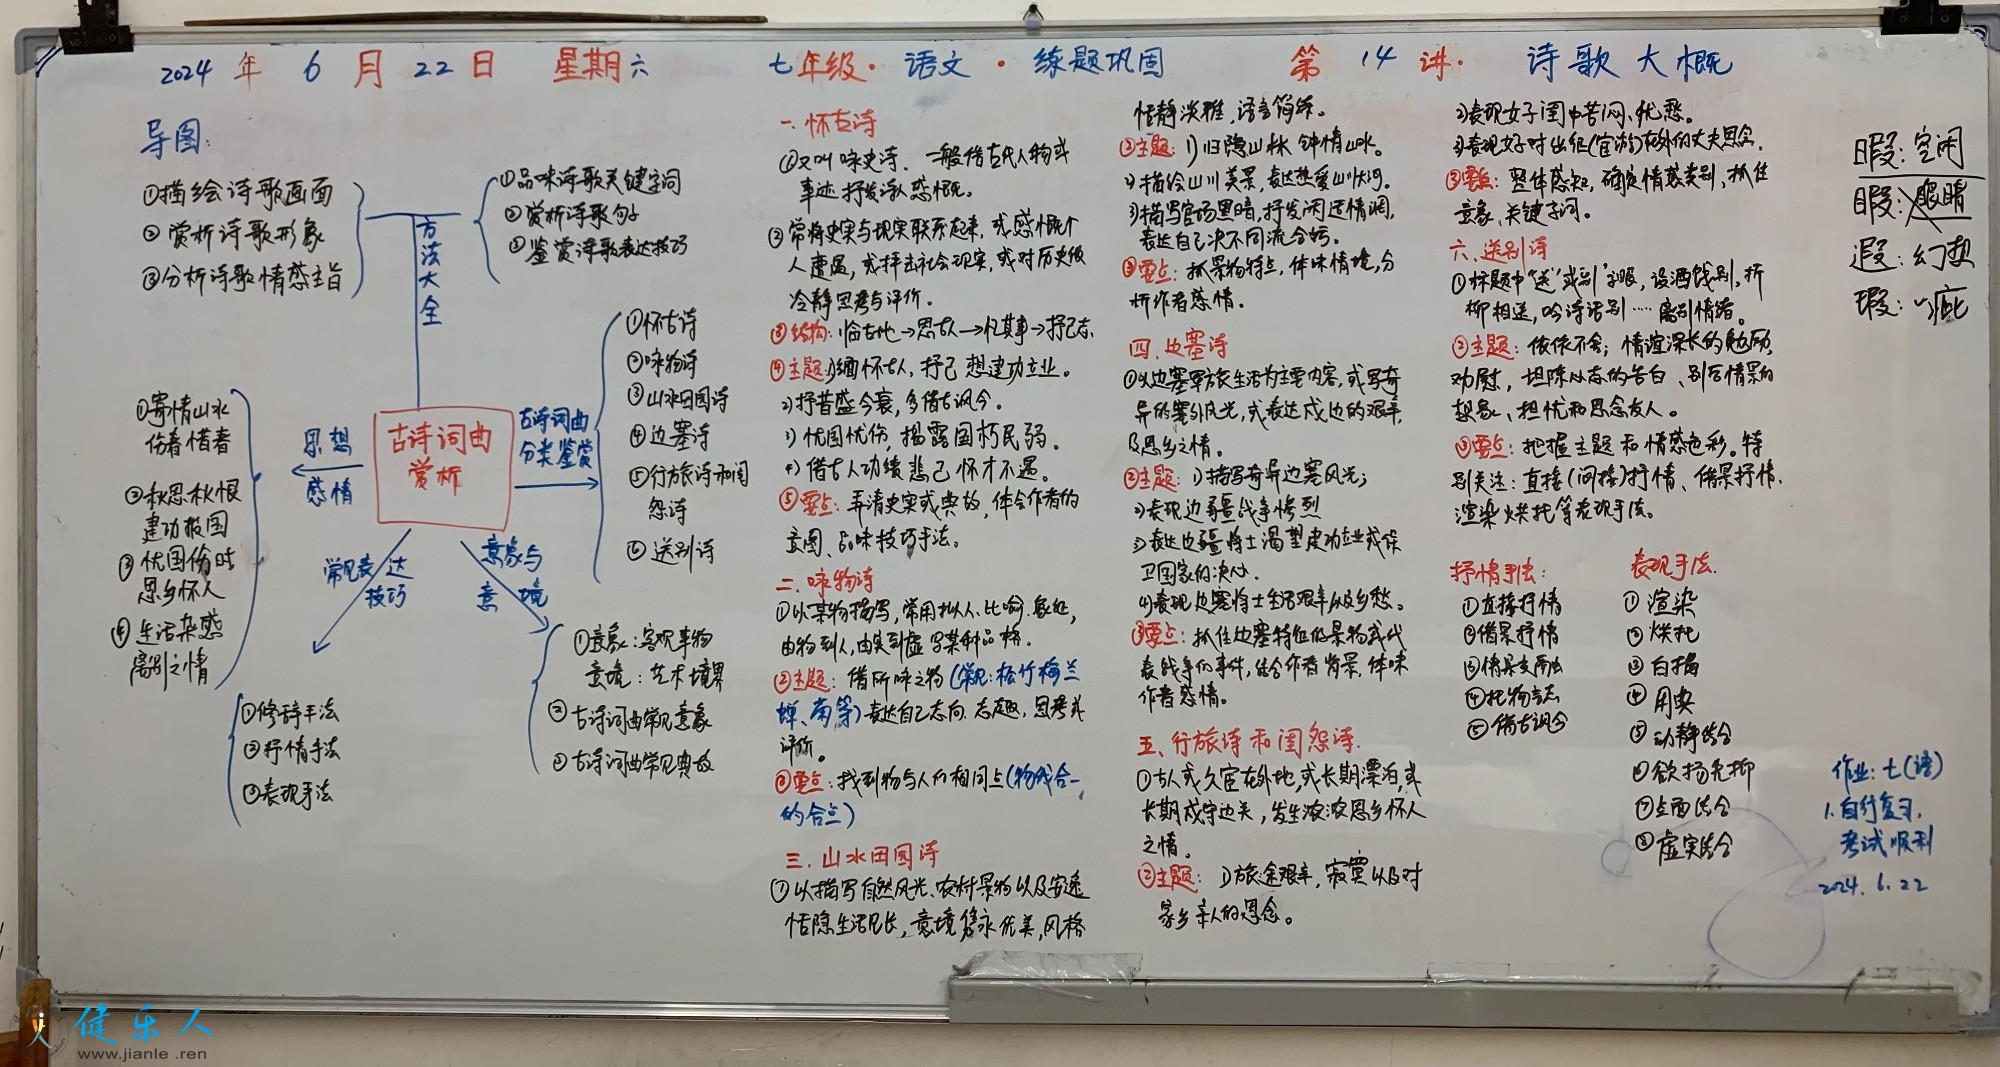 2024年6月22日 星期六 七年级·语文·练题巩固 第14讲·诗歌大概
导图:
①描绘诗歌画面
②赏析诗歌形象
③分析诗歌情感主旨
方法大全
①品味诗歌关键字词
②赏析诗歌句子
③鉴赏诗歌表达技巧
古诗词曲
赏析
古诗词曲
分类鉴赏
①怀古诗
②咏物诗
③山水田园诗
④边塞诗
⑤行旅诗和闺
怨诗
⑥送别诗
思想
感情
①寄情山水
伤春惜春
②秋思秋恨
建功报国
③忧国伤时
思乡怀人
④生活杂感
离别之情
常见表达
技巧
①修辞手法
②抒情手法
③表现手法
意象与
意境
①意象:客观事物
意境:艺术境界
②古诗词曲常见意象
③古诗词曲常见典故
一.怀古诗
①又叫咏史诗.一般借古代人物或
事迹抒发诗人感慨.
②常将史实与现实联系起来,或感慨个
人遭遇,或抨击社会现实,或对历史做
冷静思考与评价.
③结构:临古地→思古人→忆其事→抒己志.
④主题:1)缅怀古人,抒己想建功立业。
2)抒昔盛今衰,多借古讽今.
3)忧国忧伤,揭露国朽民弱.
4)借古人功绩悲己怀才不遇。
⑤要点:弄清史实或典故,体会作者的
意图、品味技巧手法。
二.咏物诗
①以某物描写,常用拟人、比喻.象征,
由物到人,由实到虚写某种品格.
②主题:借所咏之物(常见:松竹梅兰
蝉、菊等)表达自己志向.志趣,思考或
评价。
③要点:找到物与人的相同点(物我合一
的合点)
三.山水田园诗
①以描写自然风光、农村景物以及安逸
恬隐生活见长,意境隽永优美,风格
恬静淡雅,语言简练。
②主题:1)归隐山林 钟情山水。
2)描绘山川美景,表达热爱山河。
3)描写官场黑暗,抒发闲适情调,
表达自己决不同流合污。
③要点:抓景物特点,体味情境,分
析作者感情。
四.边塞诗
①以边塞军旅生活为主要内容,或写奇
异的塞外风光,或表达戍边的艰辛
及思乡之情。
②主题:1)描写奇异边塞风光;
2)表现边疆战争惨烈
3)表达边疆将士渴望建功立业或保
卫国家的决心.
4)表现边塞将士生活艰辛以及乡愁。
③要点:抓住边塞特征的景物或代
表战争的事件,结合作者背景,体味
作者感情。
五、行旅诗和闺怨诗.
①古人或久宦在外地,或长期漂泊,或
长期戍守边关,发生浓浓思乡怀人
之情。
②主题:1)旅途艰辛,寂寞以及对
家乡亲人的思念。
2)表现女子闺中苦闷、忧愁。
3)表现女子对出征(宦游)在外的丈夫思念.
③要点:整体感知,确定情感类别,抓住
意象、关键字词。
六.送别诗
①标题中“送”或“别”字眼,设酒饯别,折
柳相送,吟诗话别……离别情绪。
②主题:依依不舍;情谊深长的勉励,
劝慰,坦陈心志的告白、别后情景的
想象、担忧和思念友人。
③要点:把握主题和情感色彩.特
别关注:直接(间接)抒情、借景抒情.
渲染烘托等表现手法。
抒情手法:
①直接抒情
②借景抒情
③情景交融法
④托物言志
⑤借古讽今
表现手法.
①渲染
②烘托
③白描
④用典
⑤动静结合
⑥欲扬先抑
⑦点面结合
⑧虚实结合
暇:空闲
睱:眼睛
遐:幻想
瑕:~疵
作业:七(语)
1.自行复习,
考试顺利
2024.6.22
健乐人
www.jianle.ren